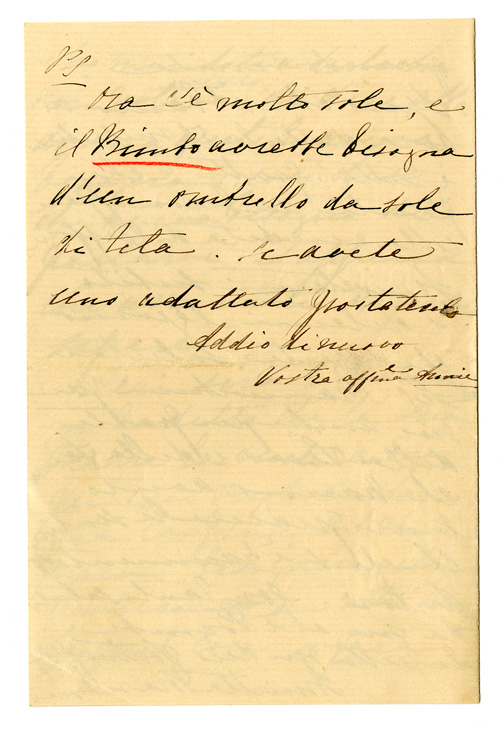 PS
Ora c'è molto sole, e
il Bimbo avrebbe bisogna
d'un ombrello da sole
di tela. Se avete
uno adattato portatelo
Addio di nuovo
Vostra affma Annie